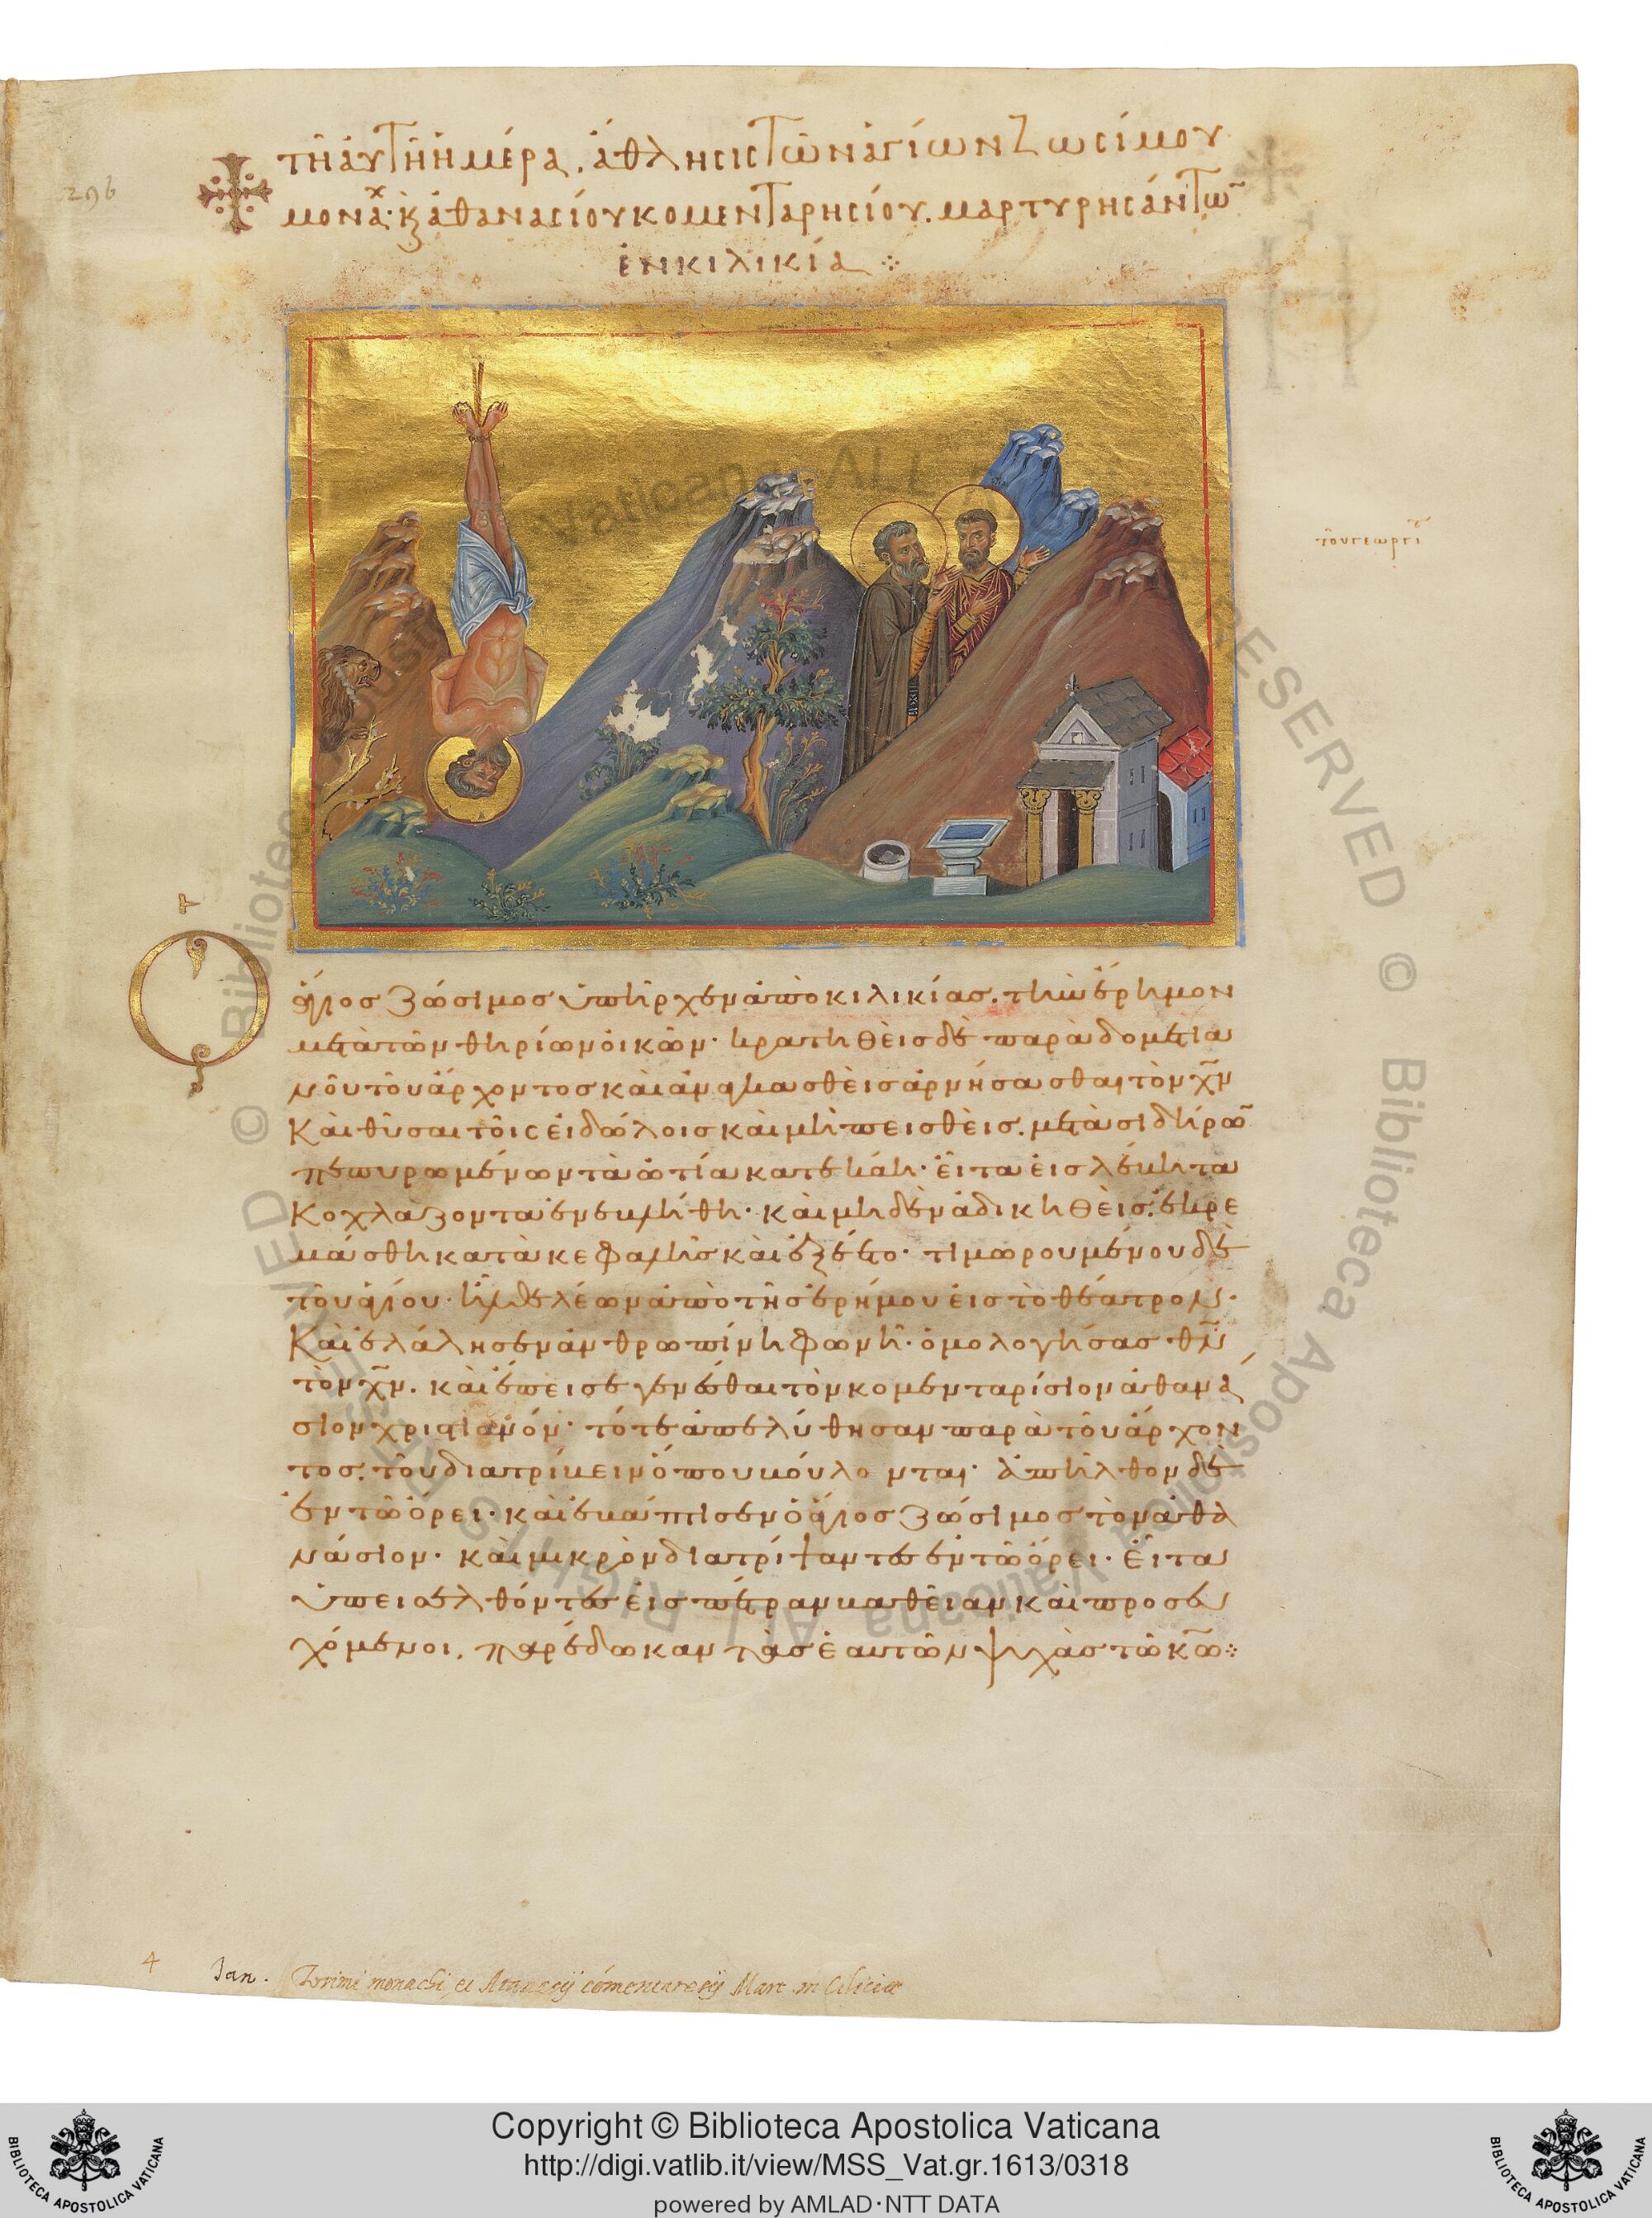 296
τῆ αὐτῆ ἡμέρα. ἄθλησις τῶν ἁγίων Ζωσίμου
μοναχ· κ ἀθανασίου κομενταρησίου. μαρτυρησάντω
ἐν κιλικία
του γεωργι
τ
Ο
ἅγιος ζώσιμος ὑπῆρχεν ἀπὸ κιλικίας. τὴν ἔρημον
μετὰ τῶν θηρίων οἰκῶν· κρατηθεὶς δὲ παρὰ δομετια
νοῦ τοῦ ἄρχοντος καὶ ἀναγκασθεὶς ἀρνήσασθαι τὸν χν
καὶ θῦσαι τοῖς εἰδώλοις καὶ μὴ πεισθείς. μετὰ σιδήρω
πεπυρωμένων τὰ ὠτία κατεκάη· εἶτα εἰς λέβητα
κοχλάζοντα ἐνεβλήθη· καὶ μηδὲν ἀδικηθείς. ἐκρε
μάσθη κατὰ κεφαλῆς καὶ ἐξέετο· τιμωρουμένου δὲ
τοῦ ἁγίου· ἦλθε λέων ἀπὸ τῆς ἐρήμου εἰς τὸ θέατρον·
καὶ ἐλάλησεν ἀνθρωπίνη φωνῆ· ὁμολογήσας θν
τὸν χν. καὶ ἔπεισε γενέσθαι τὸν κομενταρίσιον ἀθανα
σιον χριστιανόν· τότε ἀπελύθησαν παρὰ τοῦ ἄρχον
τος. τοῦ διατρίβειν ὅπου βούλονται· ἀπῆλθον δὲ
ἐν τῶ ὄρει· καὶ ἐβάπτισεν ὁ ἅγιος ζώσιμος τὸν ἀθα
νάσιον· καὶ μικρὸν διατρίψαντες ἐν τῶ ὄρει· εἶτα
ὑπεισελθόντες εἰς πέτραν βαθεῖαν καὶ προσευ
χόμενοι, παρέδωκαν τὰς ἑαυτῶν ψυχὰς τῶ κω
4 Jan. Zosimi monachi, et Atanasij cómentaresij Mart. in Cilicia
Copyright © Biblioteca Apostolica Vaticana
http://digi.vatlib.it/view/MSS_Vat.gr.1613/0318
powered by AMLAD·NTT DATA
BIBLIOTECA APOSTOLICA VATICANA
BIBLIOTECA APOSTOLICA VATICANA